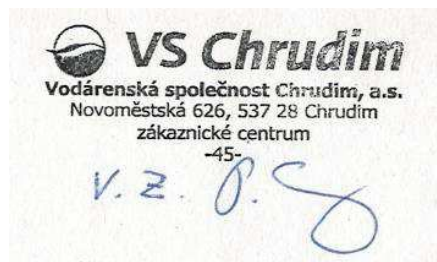 VS Chrudim
Vodárenská společnost Chrudim, a.s.
Novoměstská 626, 537 28 Chrudim
zákaznické centrum
-45-
V. Z.